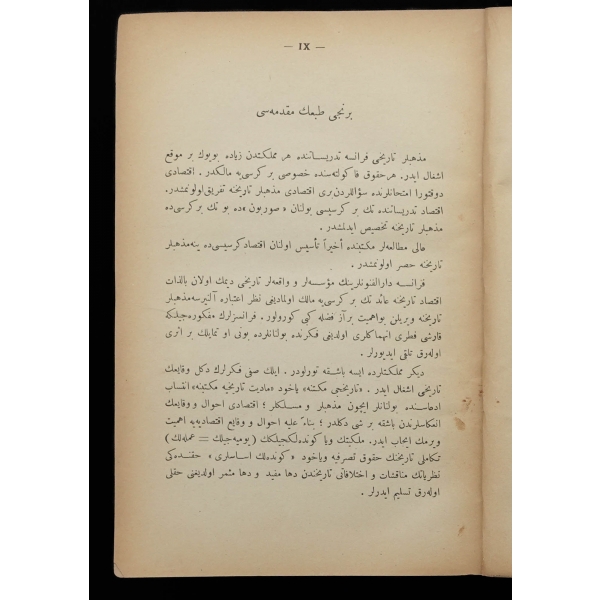 — IX —
برنجی طبعك مقدمه‌سی
مذهبلر تاریخی فرانسه تدریساتنده هر مملكتدن زیاده بویوك بر موقع
اشغال ایدر. هر حقوق فاكولته‌سنده خصوصی بر كرسی‌یه مالكدر. اقتصادی
دوقتورا امتحانلرنده سؤاللردن بری اقتصادی مذهبلر تاریخنه تفریق اولونمشدر.
اقتصاد تدریساتنده تك بر كرسیسی بولنان « صوربون »ده بو تك بر كرسی‌ده
مذهبلر تاریخنه تخصیص ایدلمشدر.
عالی مطالعه‌لر مكتبنده أخیراً تأسیس اولنان اقتصاد كرسیسی‌ده ینه مذهبلر
تاریخنه حصر اولونمشدر.
فرانسه دارالفنونلرینك مؤسسه‌لر و واقعه‌لر تاریخی دیمك اولان بالذات
اقتصاد تاریخنه عائد تك بر كرسی‌یه مالك اولمادیغی نظر اعتباره آلنیرسه مذهبلر
تاریخنه ویریلن بواهمیت برآز فضله كبی كورولور. فرانسزلرك «فكوره‌جیلك»ه
قارشی فطری انهماكلری اولدیغی فكرنده بولنانلرده بونی او تمایلك بر اثری
اوله‌رق تلقی ایدیورلر.
دیكر مملكتلرده ایسه باشقه تورلودر. ایلك صفی فكرلرك دكل وقایعك
تاریخی اشغال ایدر. «تاریخجی مكتبنه» یاخود «مادیت تاریخیه مكتبنه» انتساب
ادعاسنده بولنانلر ایچون مذهبلر و مسلكلر؛ اقتصادی احوال و وقایعك
انعكاسلرندن باشقه بر شی دكلدر؛ بناءً علیه احوال و وقایع اقتصادیه‌یه اهمیت
ویرمك ایجاب ایدر. ملكیتك ویا كونده‌لكجیلكك (یومیه‌جیلك = عمله‌لك)
تكاملی تاریخنك حقوق تصرفیه ویاخود « كونده‌لك اساسلری » حقنده‌كی
نظریاتك مناقشات و اختلافاتی تاریخندن دها مفید و دها مثمر اولدیغنی حقلی
اوله‌رق تسلیم ایدرلر.